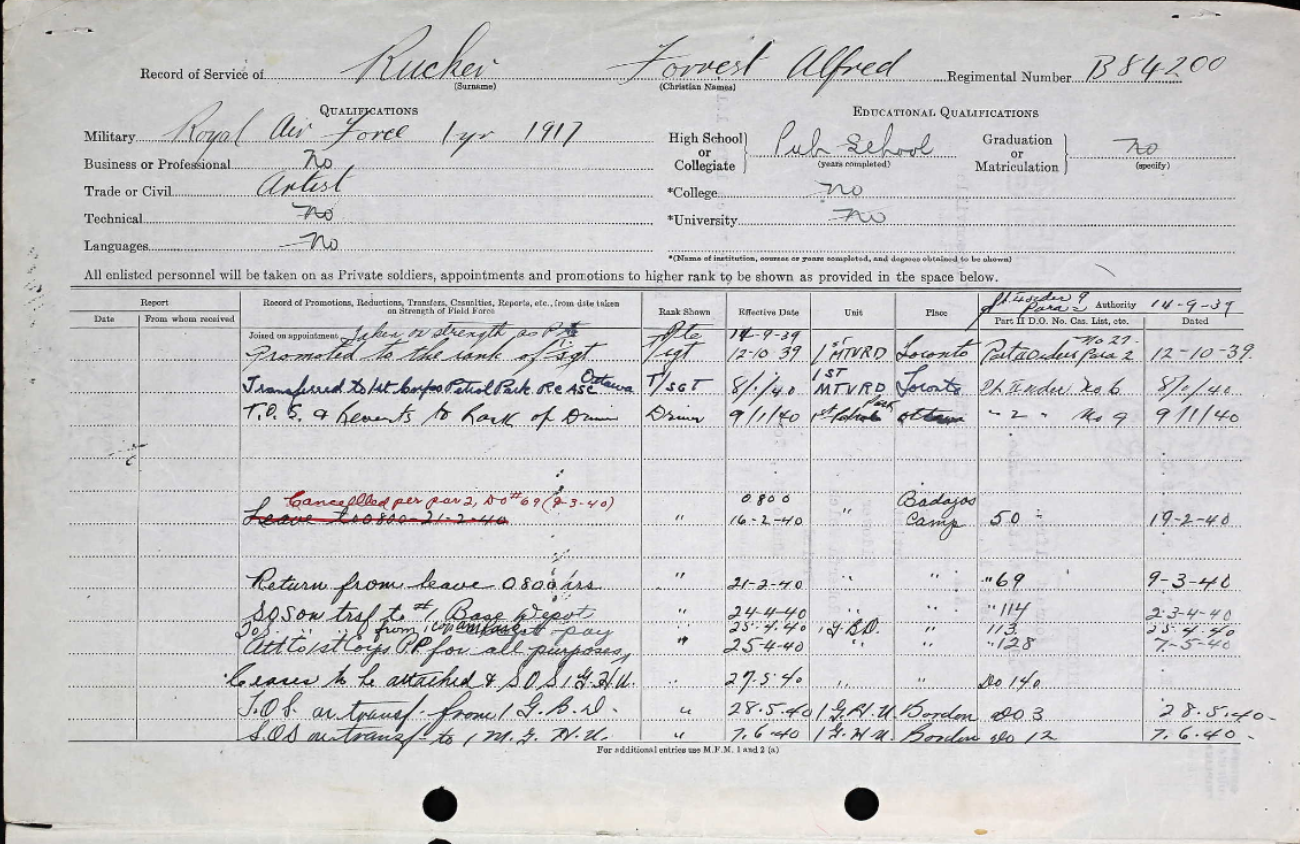 Record of Service of Rucher Forrest Alfred Regimental Number B84200
(Surname) (Christian Names)
QUALIFICATIONS
Military Royal Air Force 1 yr 1917
Business or Professional No
Trade or Civil Artist
Technical No
Languages No
EDUCATIONAL QUALIFICATIONS
High School or Collegiate Pub School (years completed) Graduation or Matriculation No (specify)
*College no
*University No
*(Name of institution, courses or years completed, and degrees obtained to be shown)
All enlisted personnel will be taken on as Private soldiers, appointments and promotions to higher rank to be shown as provided in the space below.
Report Record of Promotions, Reductions, Transfers, Casualties, Reports, etc., from date taken on Strength of Field Force Rank Shown Effective Date Unit Place Authority 14-9-39
Date From whom received Part II D.O. No. Cas. List, etc. Dated
Joined on appointment Taken on strength as Pte Pte 14-9-39
Promoted to the rank of sgt sgt 12-10-39 1st MTVRD Toronto Part 2 Orders No 27. Para 2 12-10-39.
Transferred to 1st Corps Petrol Park RCASC Ottawa T/SGT 8/1/40 1ST MTVRD Toronto Pt II order No 6 8/1/40
T.O.S. & Reverts to Rank of Driver Driver 9/1/40 1st Petrol Park Ottawa " 2 " No 9 9/1/40
Cancelled per par 2, DO #69 (9-3-40)
Leave to 0800-21-2-40 " 0800 16-2-40 " Badajos Camp 50 19-2-40
Return from leave 0800 hrs " 21-2-40 " " " 69 9-3-40
SOS on trsf to #1 Base Depot " 24-4-40 " " " 114 23-4-40
TOS from pay " 25.4.40 1 G.B.D. " 113 25.4.40
Att to 1st Corps P.P. for all purposes, " 25-4-40 " " " 128 7-5-40
Ceases to be attached & SOS 1 G.H.U. " 27.5.40 " " Do 140
T.O.S. on transf. from 1 G.B.D. " 28.5.40 1 G.H.U. Bordon do 3 28.5.40.
S.O.S on transf to 1 M.G. H.U. " 7.6.40 1 G.H.U. Bordon do 12 7.6.40.
For additional entries use M.F.M. 1 and 2 (a)